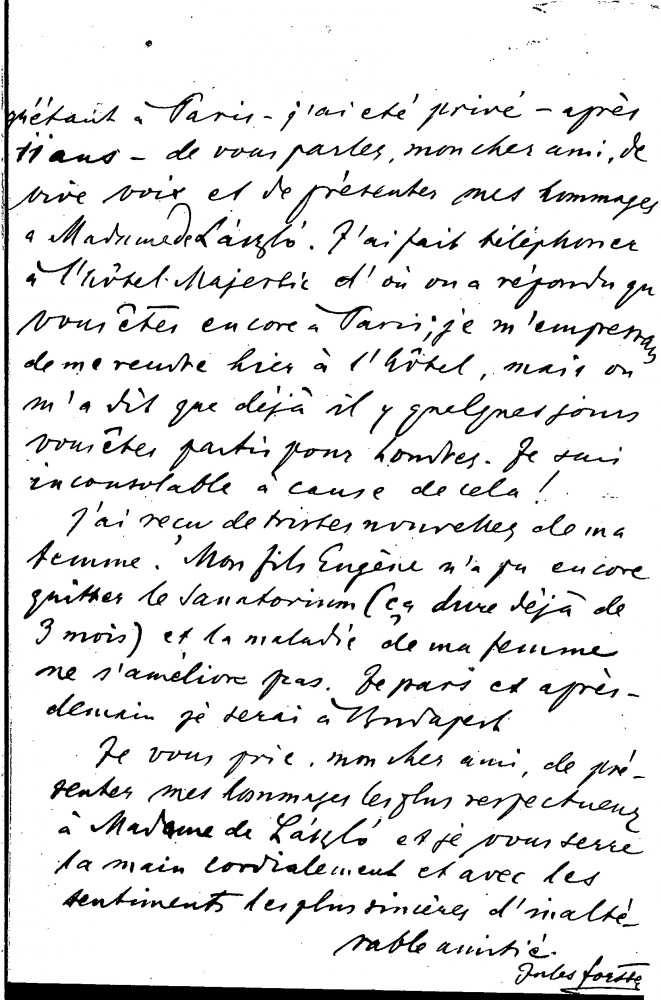 qu'étant à Paris - j'ai été privé - après
11 ans - de vous parler, mon cher ami, de
vive voix et de présenter mes hommages
a Madame de László. J'ai fait téléphoner
à l'hôtel Majestic d'où on a répondu qu
vous êtes encore à Paris; je m'empressais
de me rendre hier à l'hôtel, mais on
m'a dit que déjà il y quelques jours
vous êtes partis pour Londres. Je suis
inconsolable à cause de cela!
J'ai reçu de tristes nouvelles de ma
femme. Mon fils Eugène n'a pu encore
quitter le Sanatorium (ça dure déjà de
3 mois) et la maladie de ma femme
ne s'améliore pas. Je pars et après-
demain je serai à Budapest
Je vous prie, mon cher ami, de pré-
senter mes hommages les plus respectueux
à Madame de László et je vous serre
la main cordialement et avec les
sentiments les plus sincères d'inalté-
rable amitié.
Jules